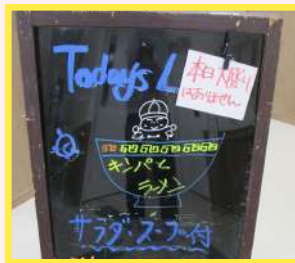 Todays L
本日大盛り
はありません
キンパと
ラーメン
サラダ・スープ付